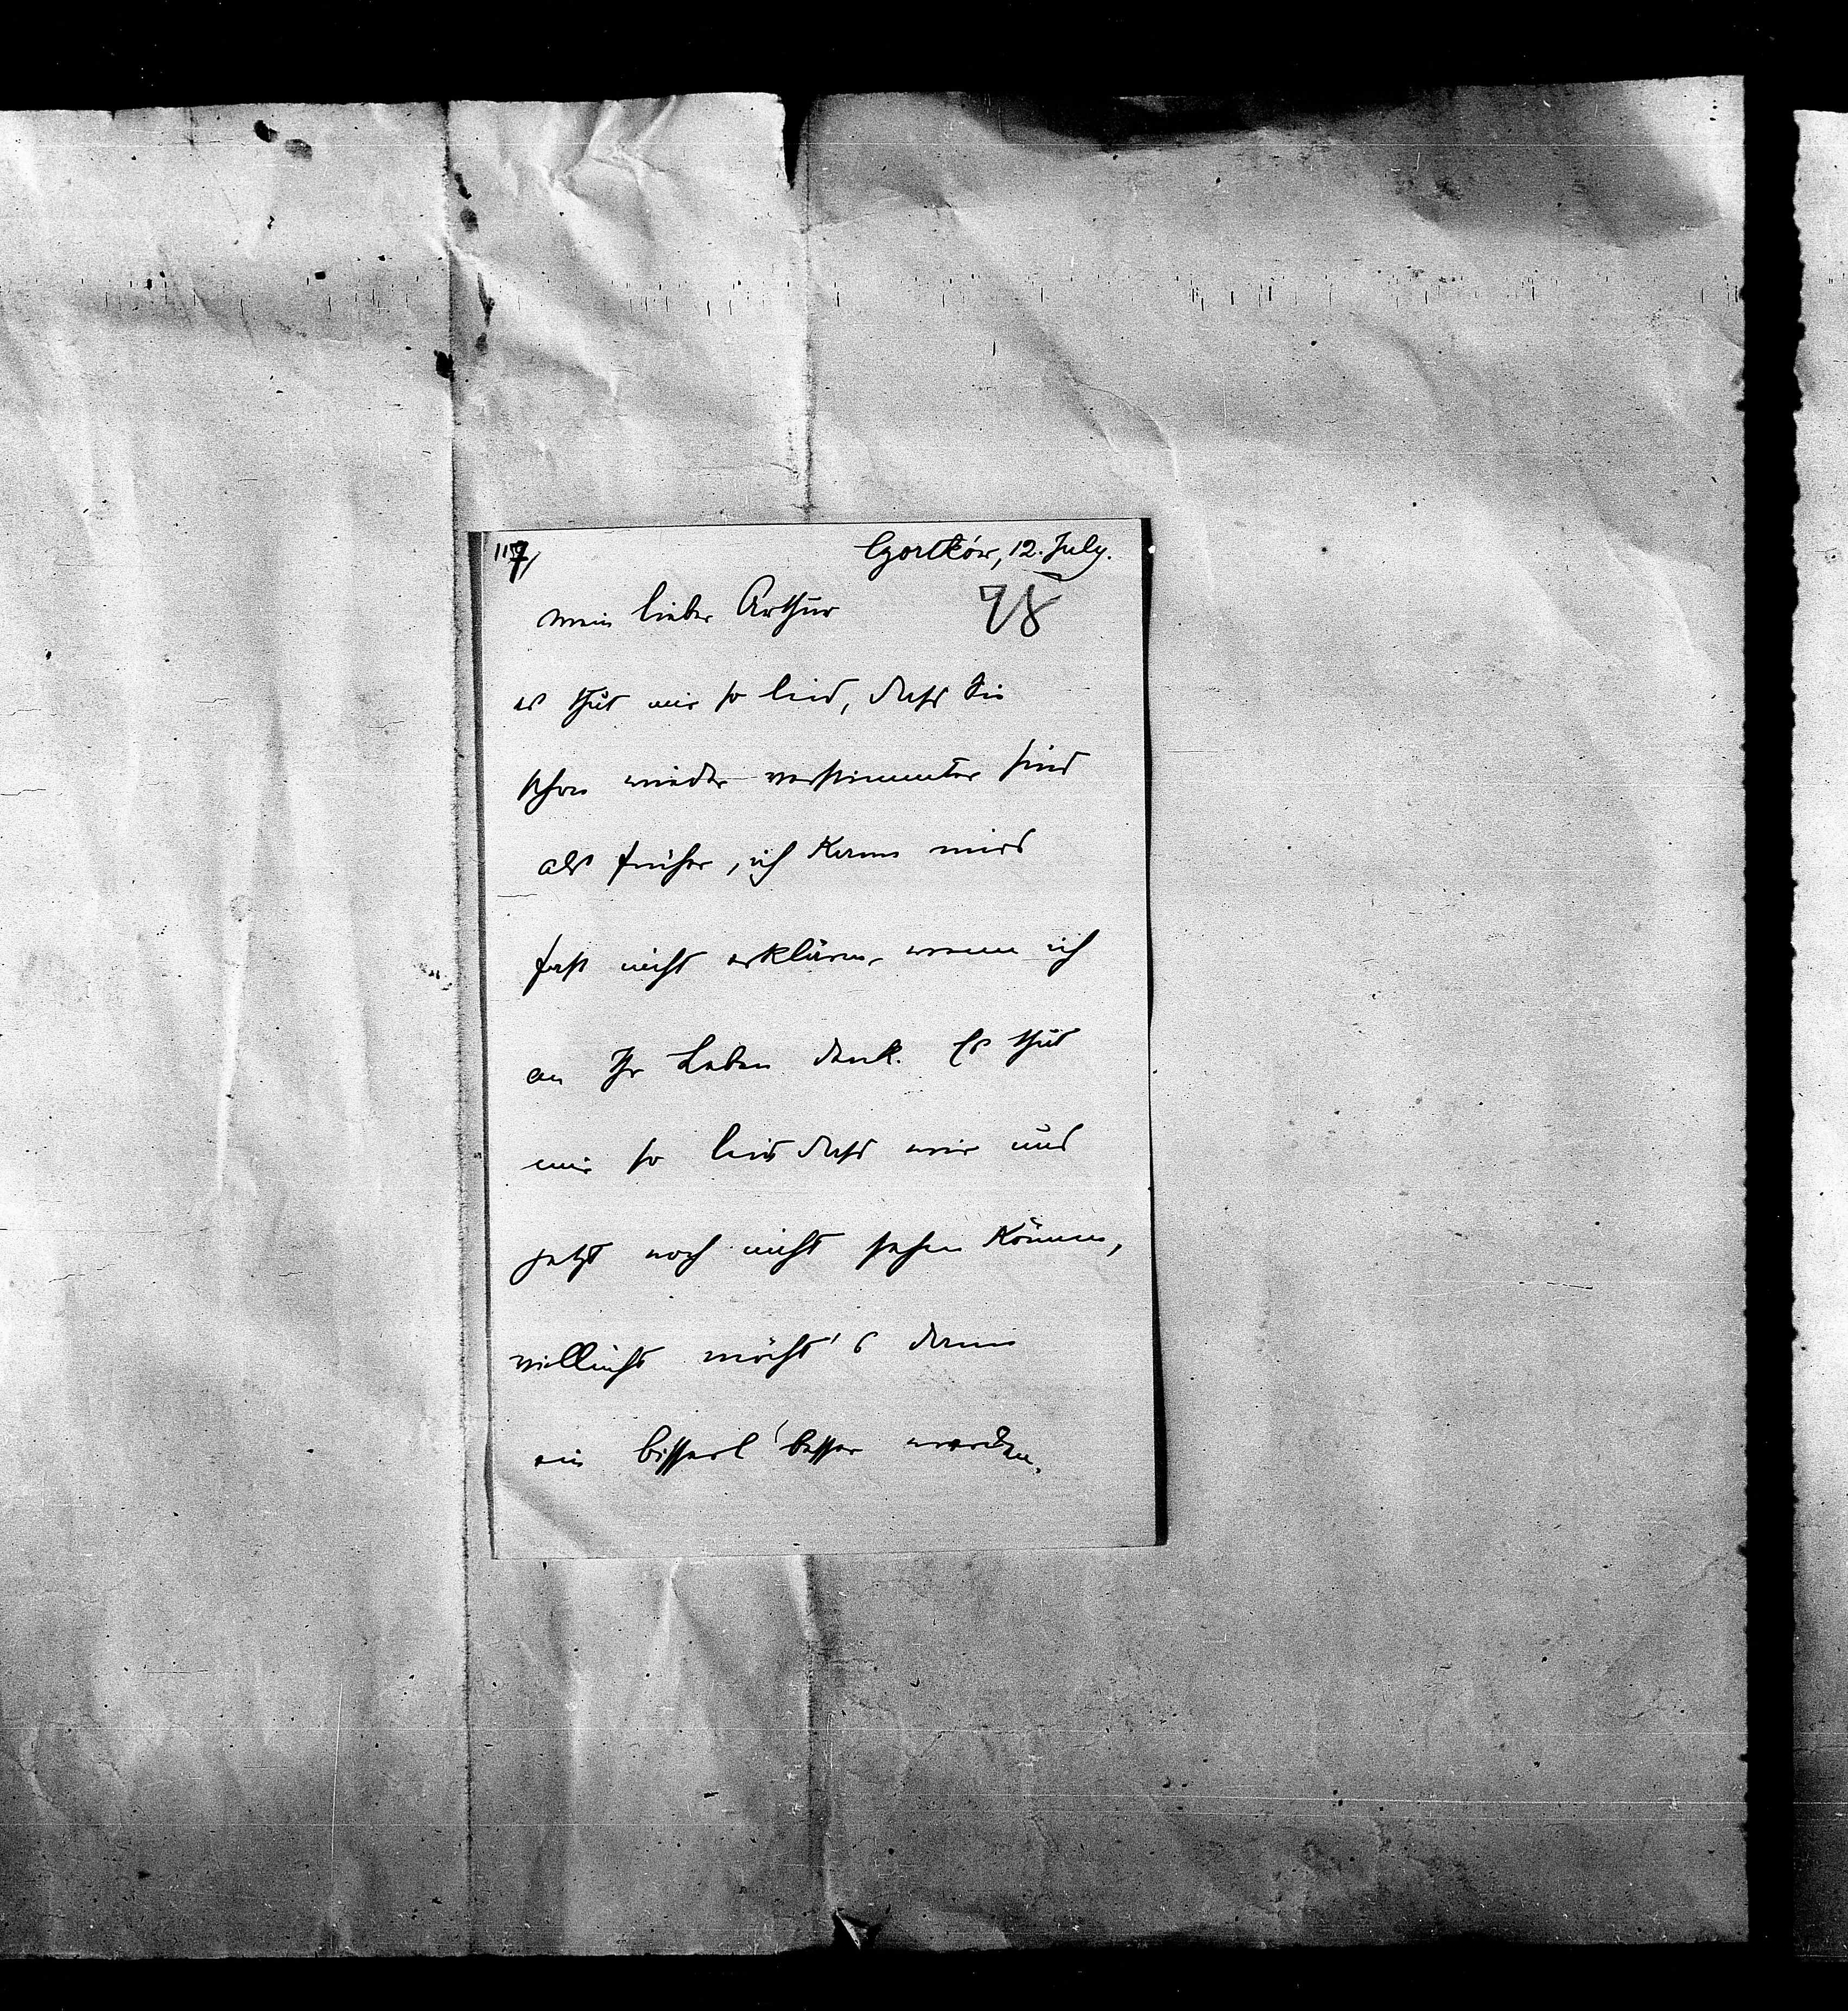 117,
Czortków, 12. July.
98
mein lieber Arthur
es thut mir so leid, dass Sie
schon wieder verstimmter sind
als früher, ich kann mirs
fast nicht erklären, wenn ich
an Ihr Leben denk. Es thut
mir so leid dass wir uns
jetzt noch nicht sehen können,
vielleicht möcht's dann
ein bisserl besser werden.